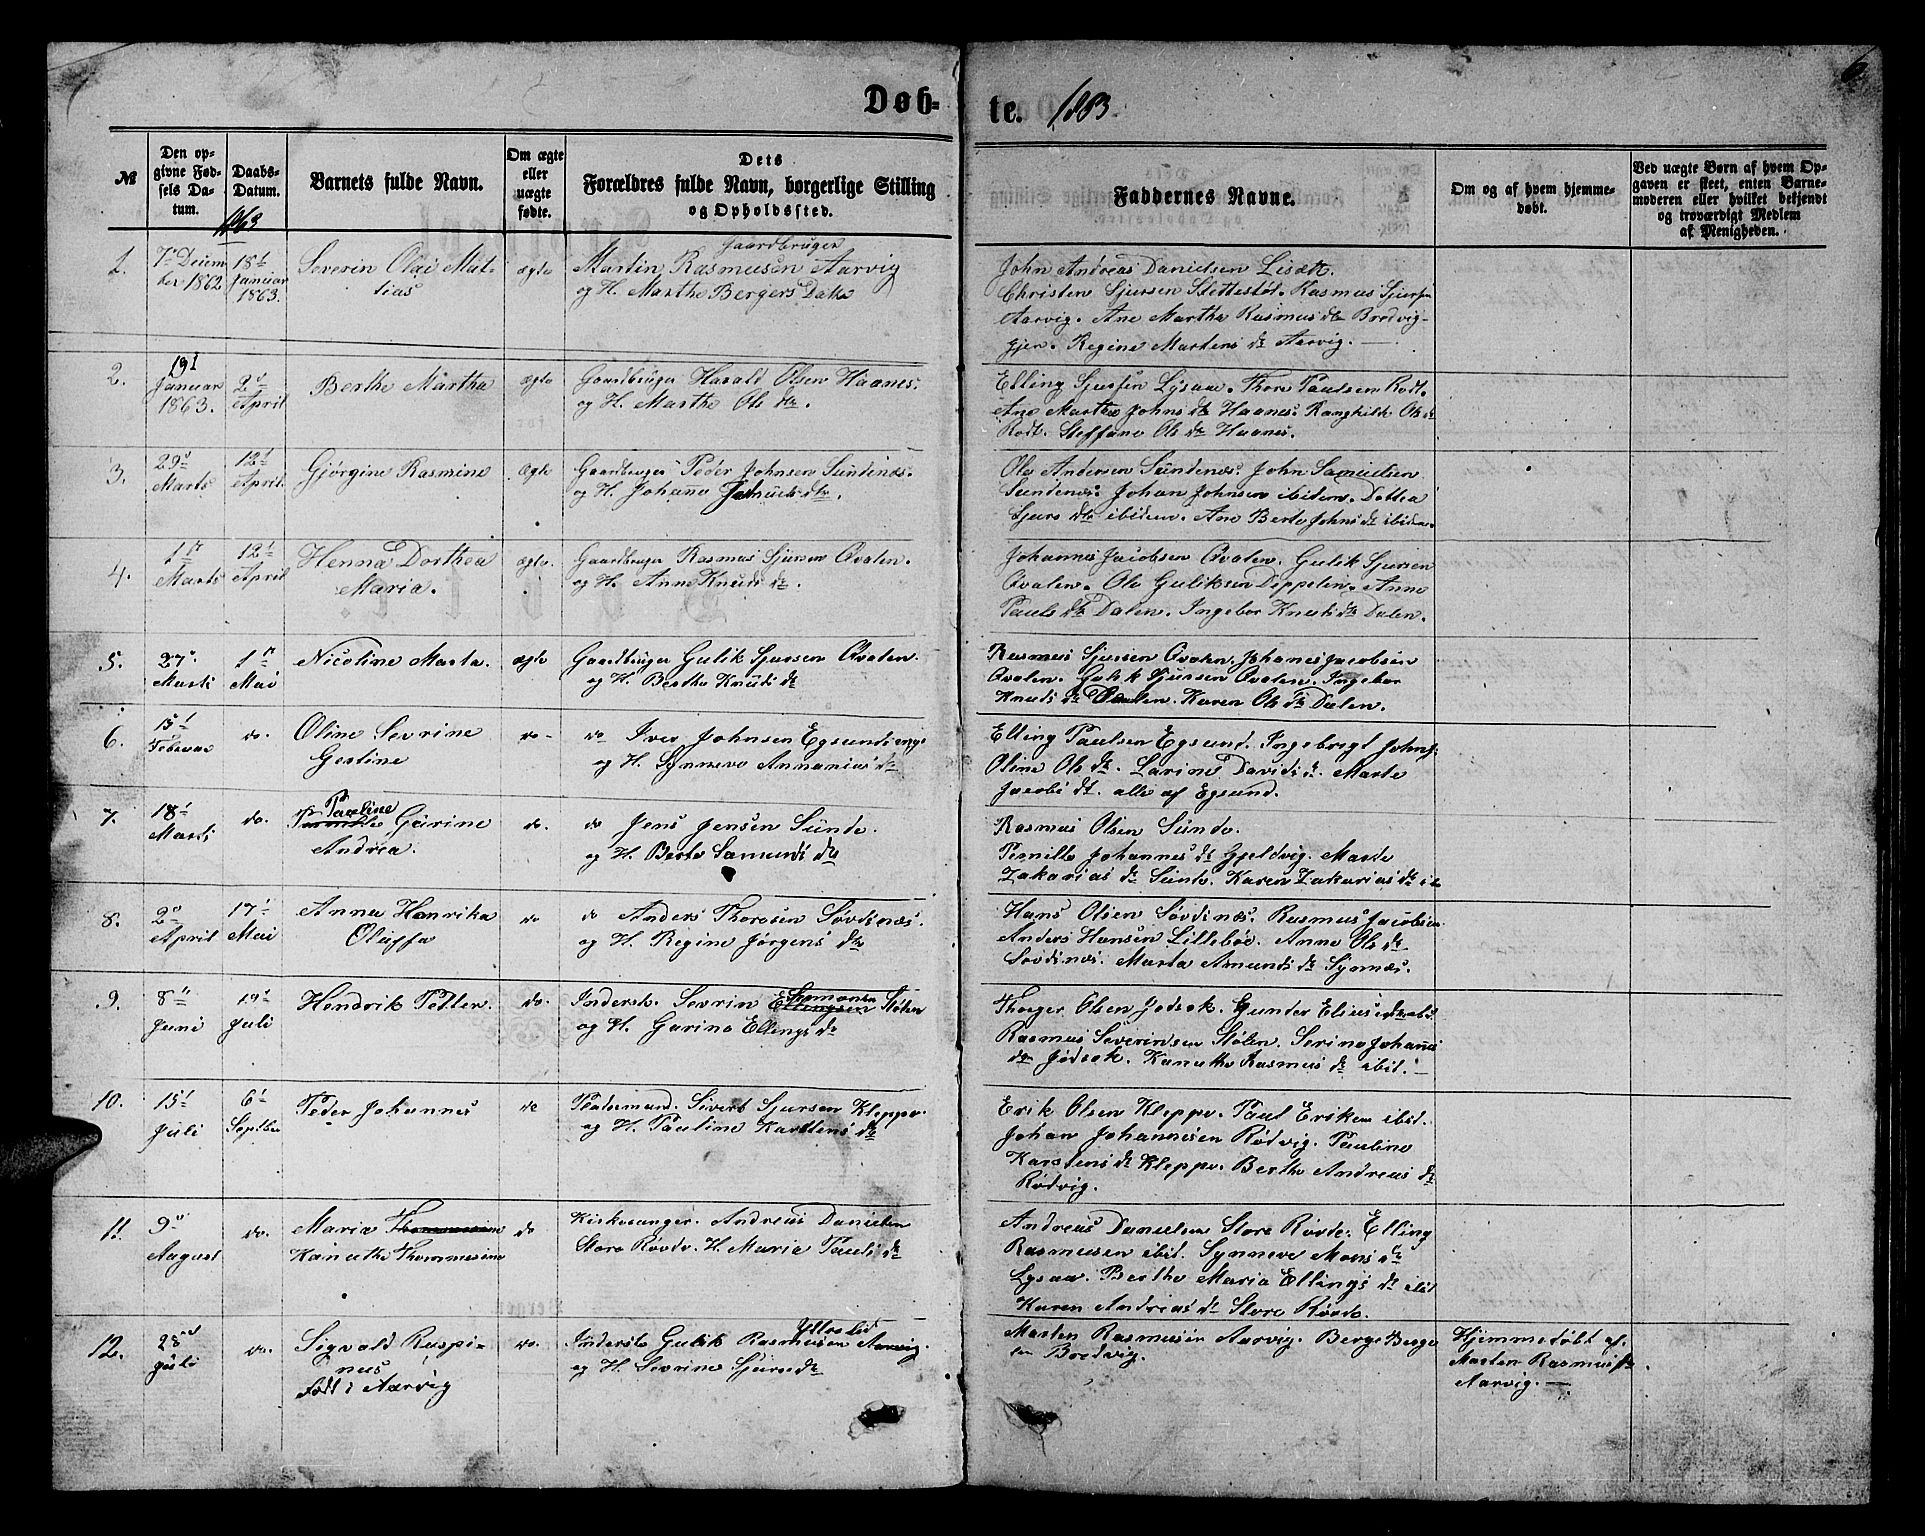 Døb-
te. 1863.
6
№
Den op-
givne Fød-
sels Da-
tum.
Daabs-
Datum.
1863
Barnets fulde Navn.
Om ægte
eller
uægte
fødte.
Dets
Forældres fulde Navn, borgerlige Stilling
og Opholdssted.
Faddernes Navne.
Om og af hvem hjemme-
døbt.
Ved uægte Børn af hvem Op-
gaven er skeet, enten Barne-
moderen eller hvilket bekjendt
og troværdigt Medlem
af Menigheden.
1.
7de Decem-
ber 1862
18d
Januar
1863.
Severin Olai Mat-
tias
ægte
Gaardbruger
Martin Rasmusen Aarvig
og H. Marthe Bergers Datr
John Andreas Danielsen Lisæt.
Christen Sjursen Slettestøl. Rasmus Sjursen
Aarvig. Ane Marthe Rasmus dtr Brødvig-
gjer. Regine Martens dr Aarvig.
2.
19d
Januar
1863.
2d
April
Berthe Martha
ægte
Gaardbruger Harald Olsen Haanes.
og H. Marthe Ols dtr.
Elling Sjursen Lysaa. Thore Paulsen Rødt.
Ane Marthe Johns dtr Haanes. Ranghilde Ols dr
Rødt. Steffane Ols dr Haanes.
3.
29d
Marts
12d
April.
Gjørgine Rasmine
ægte
Gaardbruger Peder Johnsen Sundenæs.
og H. Johane dtr.
Ole Andersen Sundenæs. John Samuelsen
Sundenæs. Johan Johnsen ibidem. Dottea
Sjurs dtr ibidem. Ane Berte Johns dr ibidem.
4.
1ste
Marts
12d
April
Henna Dorthea
Maria.
ægte.
Gaardbruger Rasmus Sjursen Qvalen.
og H. Anne Knuds dr.
Johannes Jacobsen Qvalen. Gulik Sjursen
Qvalen. Ole Guliksen Deppelen. Anne
Pauls dtr Dalen. Ingebor Knuds dtr Dalen.
5.
27d
Marts
1ste
Mai
Nicoline Marta.
ægte
Gaardbruger Gulik Sjursen Qvalen.
og H. Berthe Knuds dr
Rasmus Sjursen Qvalen. Johanes Jacobsen
Qvalen. Gulik Sjursen Qvalen. Ingebor
Knuds dr Dalen. Karen Ols dr Dalen.
6.
15d
Februar
do.
Oline Sevrine
Gestine
do
do Iver Johnsen Egsund
og H. Synneve Annanias dr
Elling Paulsen Egsund. Ingebregt Johns.
Oline Ols dr. Larine Davids dr. Marte
Jacobs dr. alle af Egsund.
7.
18d
Marts
do.
Pauline
Pernille Garine
Andrea.
do.
do Jens Jensen Sunde.
og H. Berte Samunds dtr
Rasmus Olsen Sunde.
Pernille Johannes dr Gjeldvig. Marte
Zakarias dr Sunde. Karen Zakarias dr ib
8.
2d
April
17d
Mai
Anna Henrika
Oluffa
do
do Anders Thoresen Søvdenæs.
og H. Regine Jørgens dtr
Hans Olsen Søvdenæs. Rasmus Jacobsen
Anders Hansen Lillebøe. Anne Ols dr
Sovdenæs. Marta Amunds dr Synnæs.
9.
8de
Juni
19d
Juli
Hendrik Petter.
do.
Inderst. Sevrin Ellingsen Stølen
og H. Garine Ellings dr
Thorger Olsen Jødsok. Gunder Elius dtr ibd.
Rasmus Severinsen Stølen. Serine Johanes
dr Jødsok. Kanuthe Rasmus dr ibid.
10.
15d
Juli
6d
Septbr
Peder Johannes
do
Pladsmand. Sivert Sjursen Kleppe.
og H. Pauline Karstens dtr
Erik Olsen Kleppe. Paul Eriksen ibid.
Johan Johannesen Rødvig. Pauline
Karstens dr Kleppe. Berthe Andreas dr
Rødvig.
11.
9d
August
do.
Maria Thommesine
Kanuthe Thommesine
do
Kirkesanger. Andreas Danielsen
Store Røvde. H. Maria Pauls dr
Andreas Danielsen Store Røvde. Elling
Rasmusen ibid. Synneve Mons dr
Lysaa. Berthe Maria Ellings dr ibid
Karen Andreas dr Store Røvde.
12.
28d
Juli
do.
Sigvald Ruspi-
nus
født i Aarvig
do.
Yttrelid
Inderste Gulik Rasmusen Aarvig.
og H. Sevrine Sjurs dtr
Marten Rasmusen Aarvig. Berge Berge
sen Brødvig.
Hjemmedøbt af.
Marten Rasmus
Aarvig.